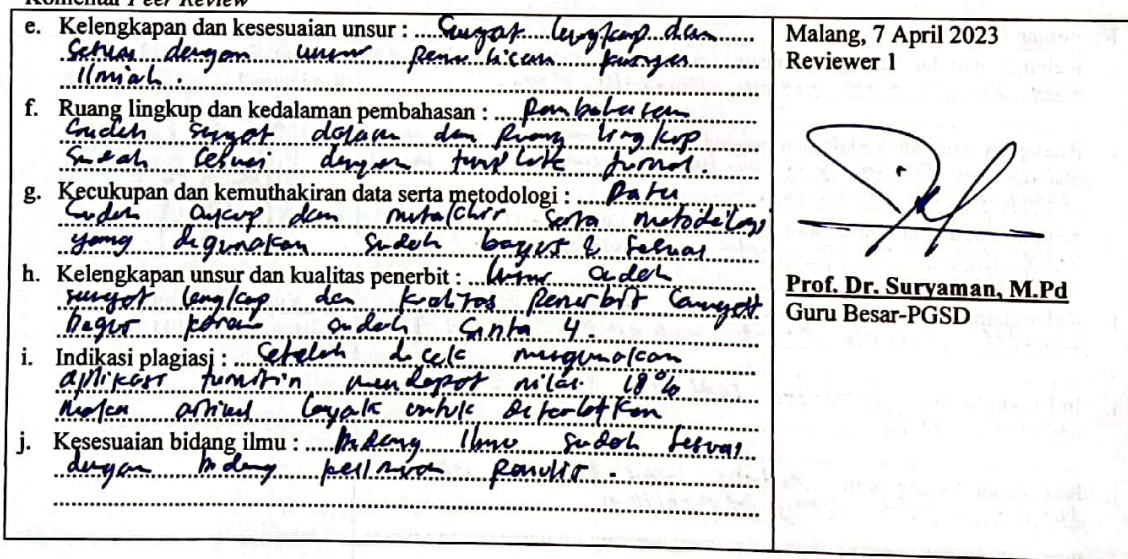 Komentar Peer Review
e. Kelengkapan dan kesesuaian unsur : Sangat lengkap dan
sesuai dengan unsur penulisan karya
ilmiah.
f. Ruang lingkup dan kedalaman pembahasan : Pembahasan
sudah sangat dalam dan ruang lingkup
sudah sesuai dengan template jurnal.
g. Kecukupan dan kemuthakiran data serta metodologi : Data
sudah cukup dan mutakhir serta metodologi
yang digunakan sudah bagus & sesuai
h. Kelengkapan unsur dan kualitas penerbit : Unsur sudah
sangat lengkap dan kualitas penerbit sangat
bagus karena sudah Sinta 4.
i. Indikasi plagiasi : Setelah di cek menggunakan
aplikasi turnitin mendapat nilai 18%
maka artikel layak untuk diterbitkan
j. Kesesuaian bidang ilmu : Bidang ilmu sudah sesuai
dengan bidang penulis.
Malang, 7 April 2023
Reviewer 1
Prof. Dr. Suryaman, M.Pd
Guru Besar-PGSD